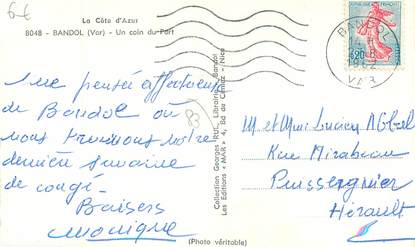 6€
La Côte d'Azur
8048 - BANDOL (Var) - Un coin du Port
Une pensée affectueuse
de Bandol où
nous terminons notre
dernière semaine
de congé.
Baisers
Monique
83
Collection Georges RUL, Librairie, Bandol
Les Editions "MAR", 4, Bd de Cimiez - Nice
BANDOL
VAR
0,20
M et Mme Lucien
Rue Mirabeau
Puisserguier
Hérault
(Photo véritable)